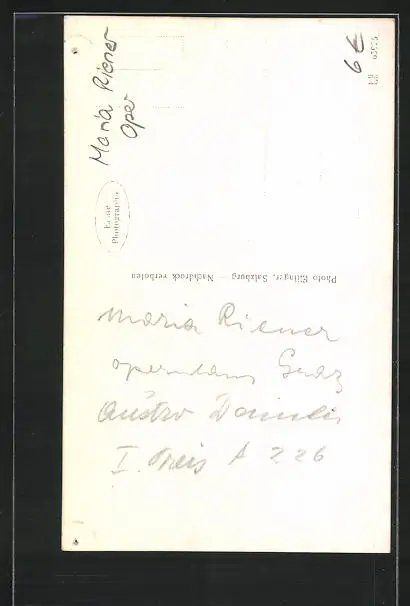 Maria Riener
Oper
6 €
Echte
Photographie
Photo Ellinger, Salzburg — Nachdruck verboten
Maria Riener
Graz
Austro Daimler
I. Preis A 226